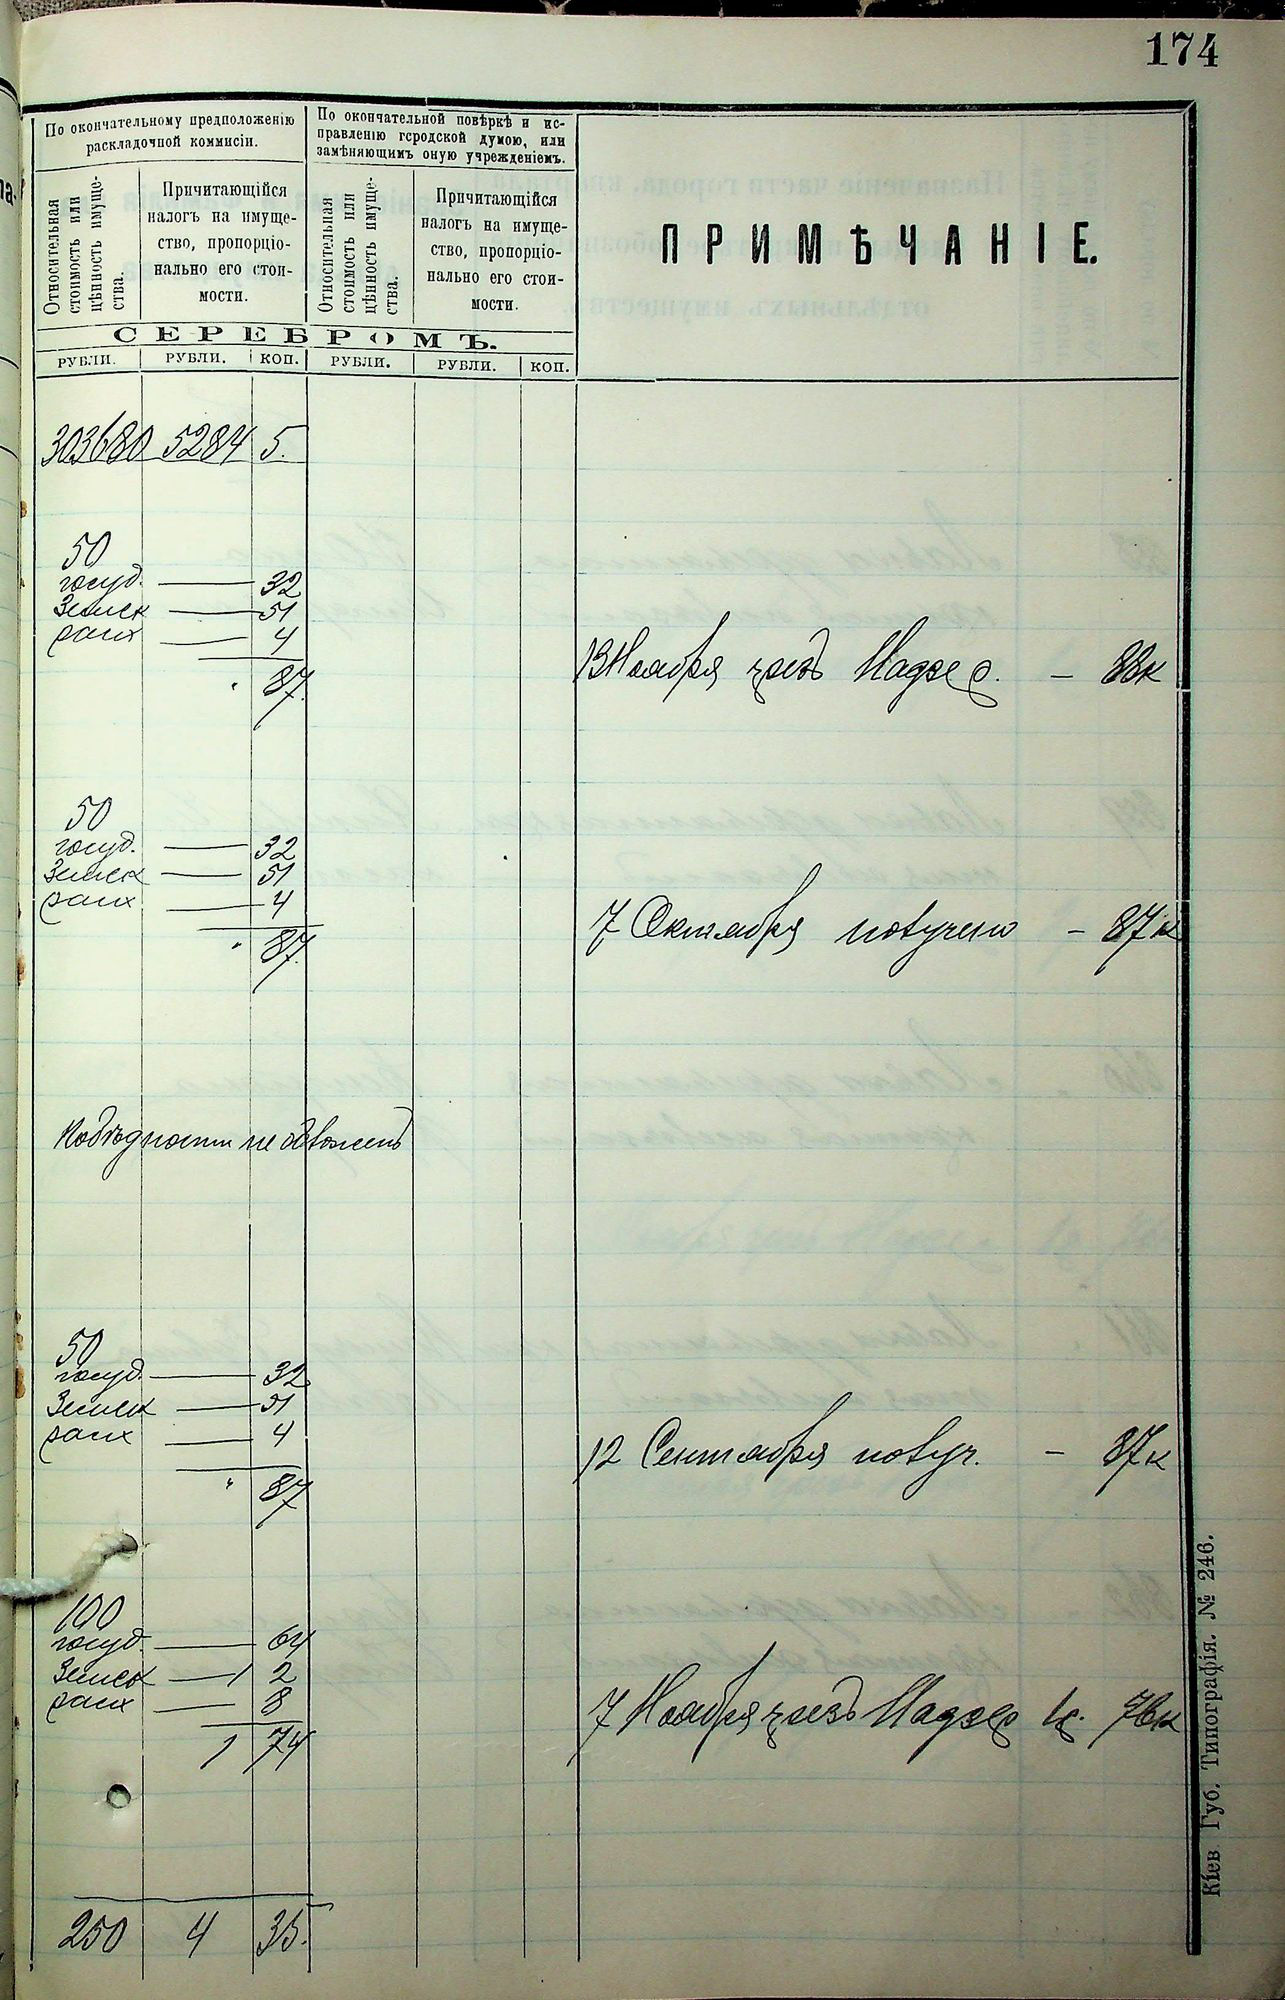 174
По окончательному предположенію
раскладочной коммисіи.
По окончательной повѣркѣ и ис-
правленію городской думою, или
замѣняющимъ оную учрежденіемъ.
Относительная
стоимость или
цѣнность имуще-
ства.
Причитающійся
налогъ на имуще-
ство, пропорціо-
нально его стои-
мости.
Относительная
стоимость или
цѣнность имуще-
ства.
Причитающійся
налогъ на имуще-
ство, пропорціо-
нально его стои-
мости.
ПРИМѢЧАНІЕ.
СЕРЕБРОМЪ.
РУБЛИ. РУБЛИ. КОП. РУБЛИ. РУБЛИ. КОП.
303680 5284 5.
50
госуд. — 32
Земск — 51
раск — 4
87.
13 Ноября чрезъ Надзс. — 88к
50
госуд. — 32
Земск — 51
раск — 4
87.
7 Октября получено — 87к
По бѣдности не обложенъ
50
госуд. — 32
Земск — 51
раск — 4
87
12 Сентября получ. — 87к
100
госуд. — 64
Земск — 1 2
раск — 8
1 74
7 Ноября чрезъ 1р. 76к
250 4 35.
Кіев Губ. Типографія. № 246.